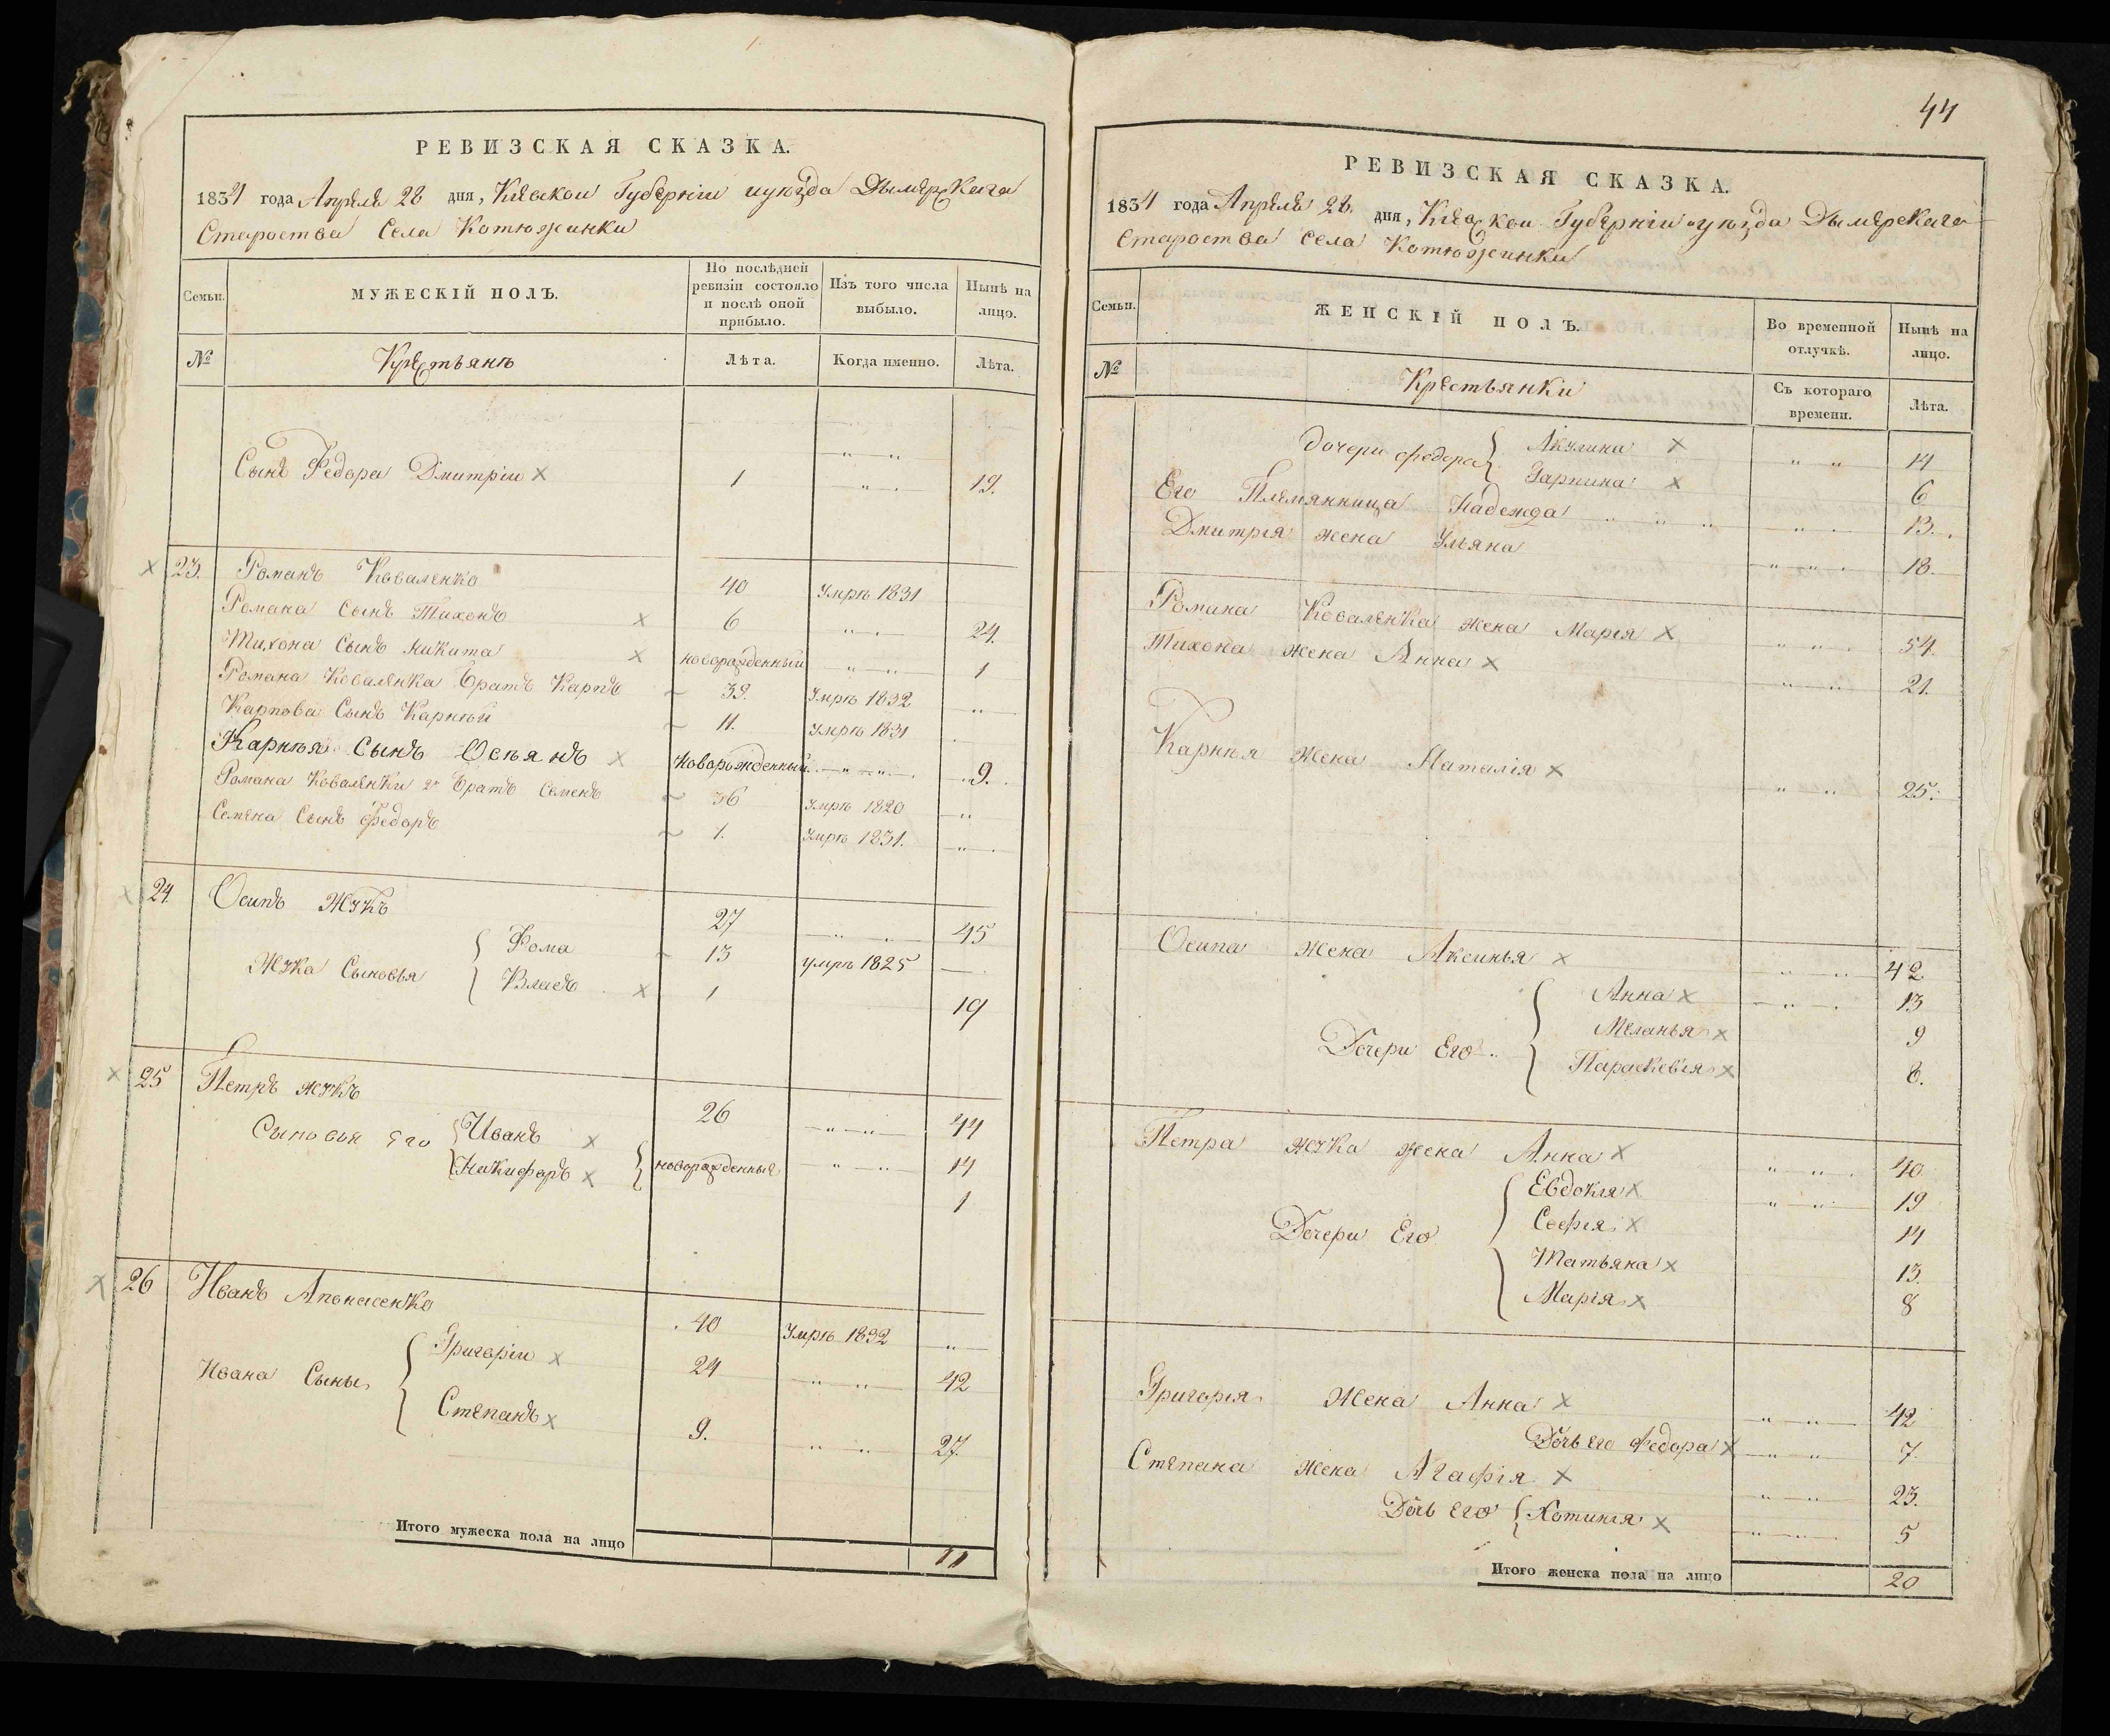 РЕВИЗСКАЯ СКАЗКА.
1834 года Апреля 28 дня, Кіевской Губерніи и уѣзда Дымерскаго
Староства Села Котюжинки
Семьи.
МУЖЕСКІЙ ПОЛЪ.
По послѣдней ревизіи состояло и послѣ оной прибыло.
Изъ того числа выбыло.
Нынѣ на лицо.
№
Крестьянѣ
Лѣта.
Когда именно.
Лѣта.
Сынъ Федора Дмитріи 1 19.
23. Романъ Коваленко 40 Умрѣ 1831
Романа Сынъ Тихонъ 6 24.
Тихона Сынъ Никита новорожденный 1
Романа Коваленка Братъ Карпъ 39. Умрѣ 1832
Карпова Сынъ Карнѣй 11. Умрѣ 1831
Карнѣя Сынъ новорожденный 9.
Романа Коваленки 2й Братъ Семенъ 36 Умрѣ 1820
Семена Сынъ Федоръ 1. Умрѣ 1831.
24 Осипъ Жукъ 27 45
Жука Сыновья Фома 13 умрѣ 1825
Власъ 1 19
25 Петръ Жукъ 26 44
Сыновья его Иванъ новорожденныя 14
Никифоръ 1
26 Иванъ Апонасенко 40 Умрѣ 1832
Ивана Сыны Григоріи 24 42
Степанъ 9. 27.
Итого мужеска пола на лицо 11
44
РЕВИЗСКАЯ СКАЗКА.
1834 года Апреля 28. дня, Кіевской Губерніи и уѣзда Дымерскаго
Староства села Котюжинки
Семьи.
ЖЕНСКІЙ ПОЛЪ.
Во временной отлучкѣ.
Нынѣ на лицо.
№
Крестьянки
Съ котораго времени.
Лѣта.
дочери федора Акулина 14
6
Его Племянница Надежда 13.
Дмитрія жена Ульяна 18.
Романа Коваленка жена Марія 54.
Тихона жена Анна 21.
Карнѣя жена Наталія 25.
Осипа жена Аксинья 42
Дочери Его Анна 13
Меланья 9
Параскевія 8.
Петра жука жена Анна 40
Дочери Его Евдокія 19
Софія 14
Татьяна 13.
Марія 8
Григорія Жена Анна 42
Дочь его Федора 7.
Степана жена Агафія 23.
Дочь его Хотинія 5
Итого женска пола на лицо 20